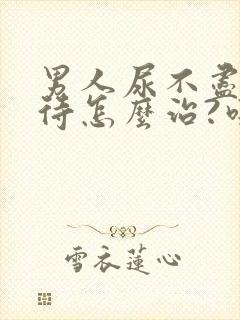 男人尿不盡
待怎麼治?吃
雪衣蓮心